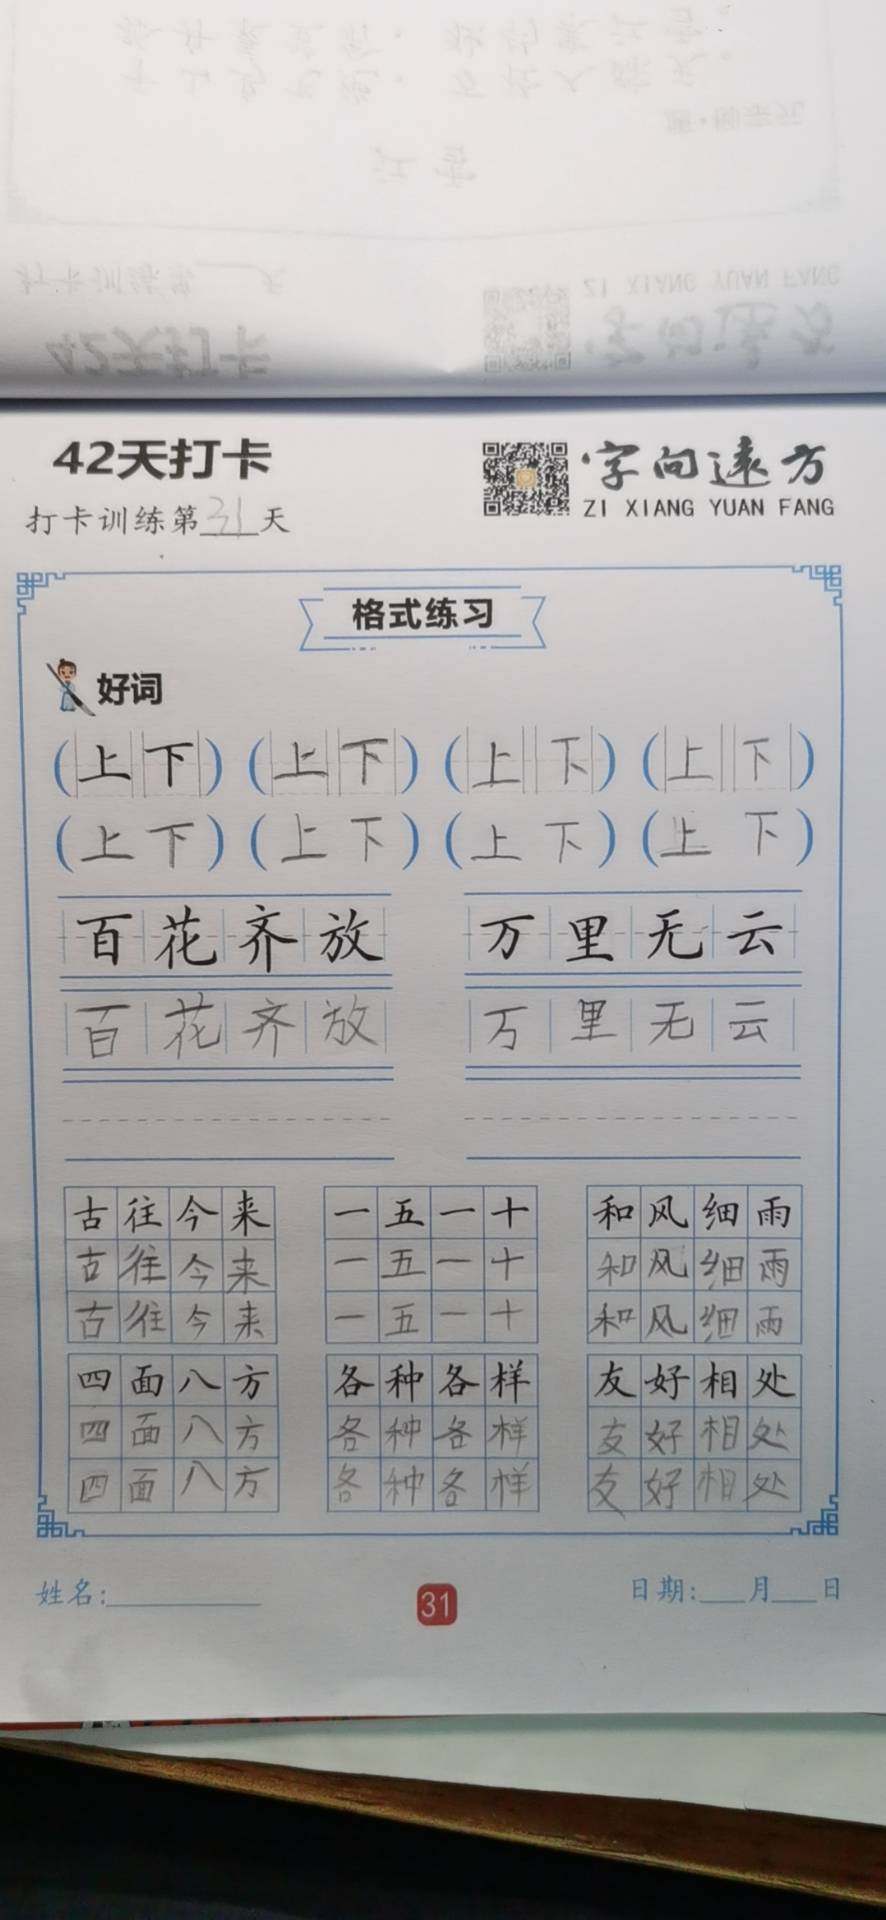 42天打卡
字向远方
ZI XIANG YUAN FANG
打卡训练第31天
格式练习
好词
(上下) (上下) (上下) (上下)
(上下) (上下) (上下) (上下)
百花齐放 万里无云
百花齐放 万里无云
古往今来 一五一十 和风细雨
古往今来 一五一十 和风细雨
古往今来 一五一十 和风细雨
四面八方 各种各样 友好相处
四面八方 各种各样 友好相处
四面八方 各种各样 友好相处
姓名:
31
日期:___月___日